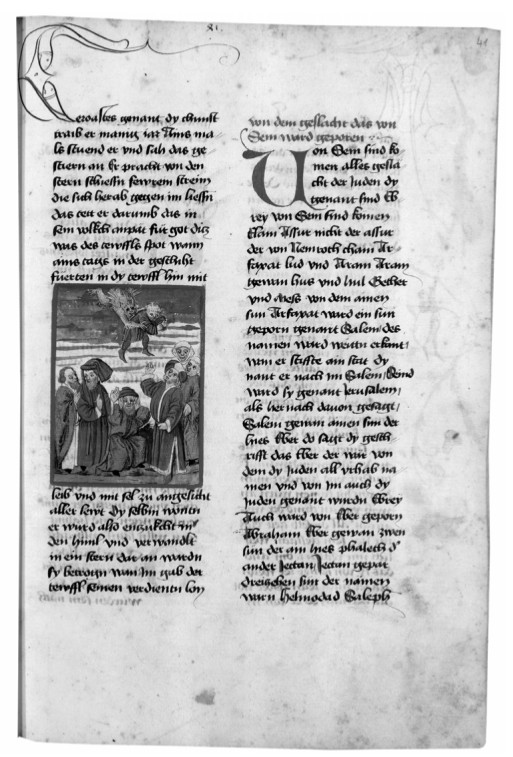 41
Zeroastes genant dy chunst
traib er manig iar Ains ma
ls stuend er vnd sach das ge
stiern an Er pracht von den
stern schliessn fewrem strein
die sich herab gegen im liessn
das tett er darumb das in
sein volkch anpat fur got dúz
was des tewffls spot wann
ains tags in der geschicht
fuerten in dy tewffl hin mit
leib vnd mit sel zu angesicht
aller lewt dy selbin wontn
er wurd also enzukcht in
den himl vnd verwandlt
in ein stern dar an wardn
sy betrogn wan im gab der
tewffl seinen verdientn lon
von dem geslacht das von
Sem ward geporen
Von Sem sind ko
men alles gesla
cht der Juden dy
genant sind Eb
rey von Sem sind komen
Elam Assur nicht der assur
der von Nemroth cham Ar
faxat lud vnd Aram Aram
gewan hus vnd hul Gether
vnd Mess von dem ainen
sun Arfaxat ward ein sun
geporn genant Salem des
namen ward weitn erkant
wan er stiffte ain stat dy
nant er nach im Salem Seind
ward sy genant Jerusalem
als hernach davon gesagt
Salem gewan ainen sun der
hies Eber do sagt dy gesch
rifft das Eber der war von
dem dy Juden all vrhab na
men vnd von im auch dy
Juden genant wurdn Ebrey
Auch ward von Eber geporn
Abraham Eber gewan zwen
sun der ain hies phalech d
ander Jectan Jectan gepar
dreizehen sun der namen
warn Helmodad Saleph